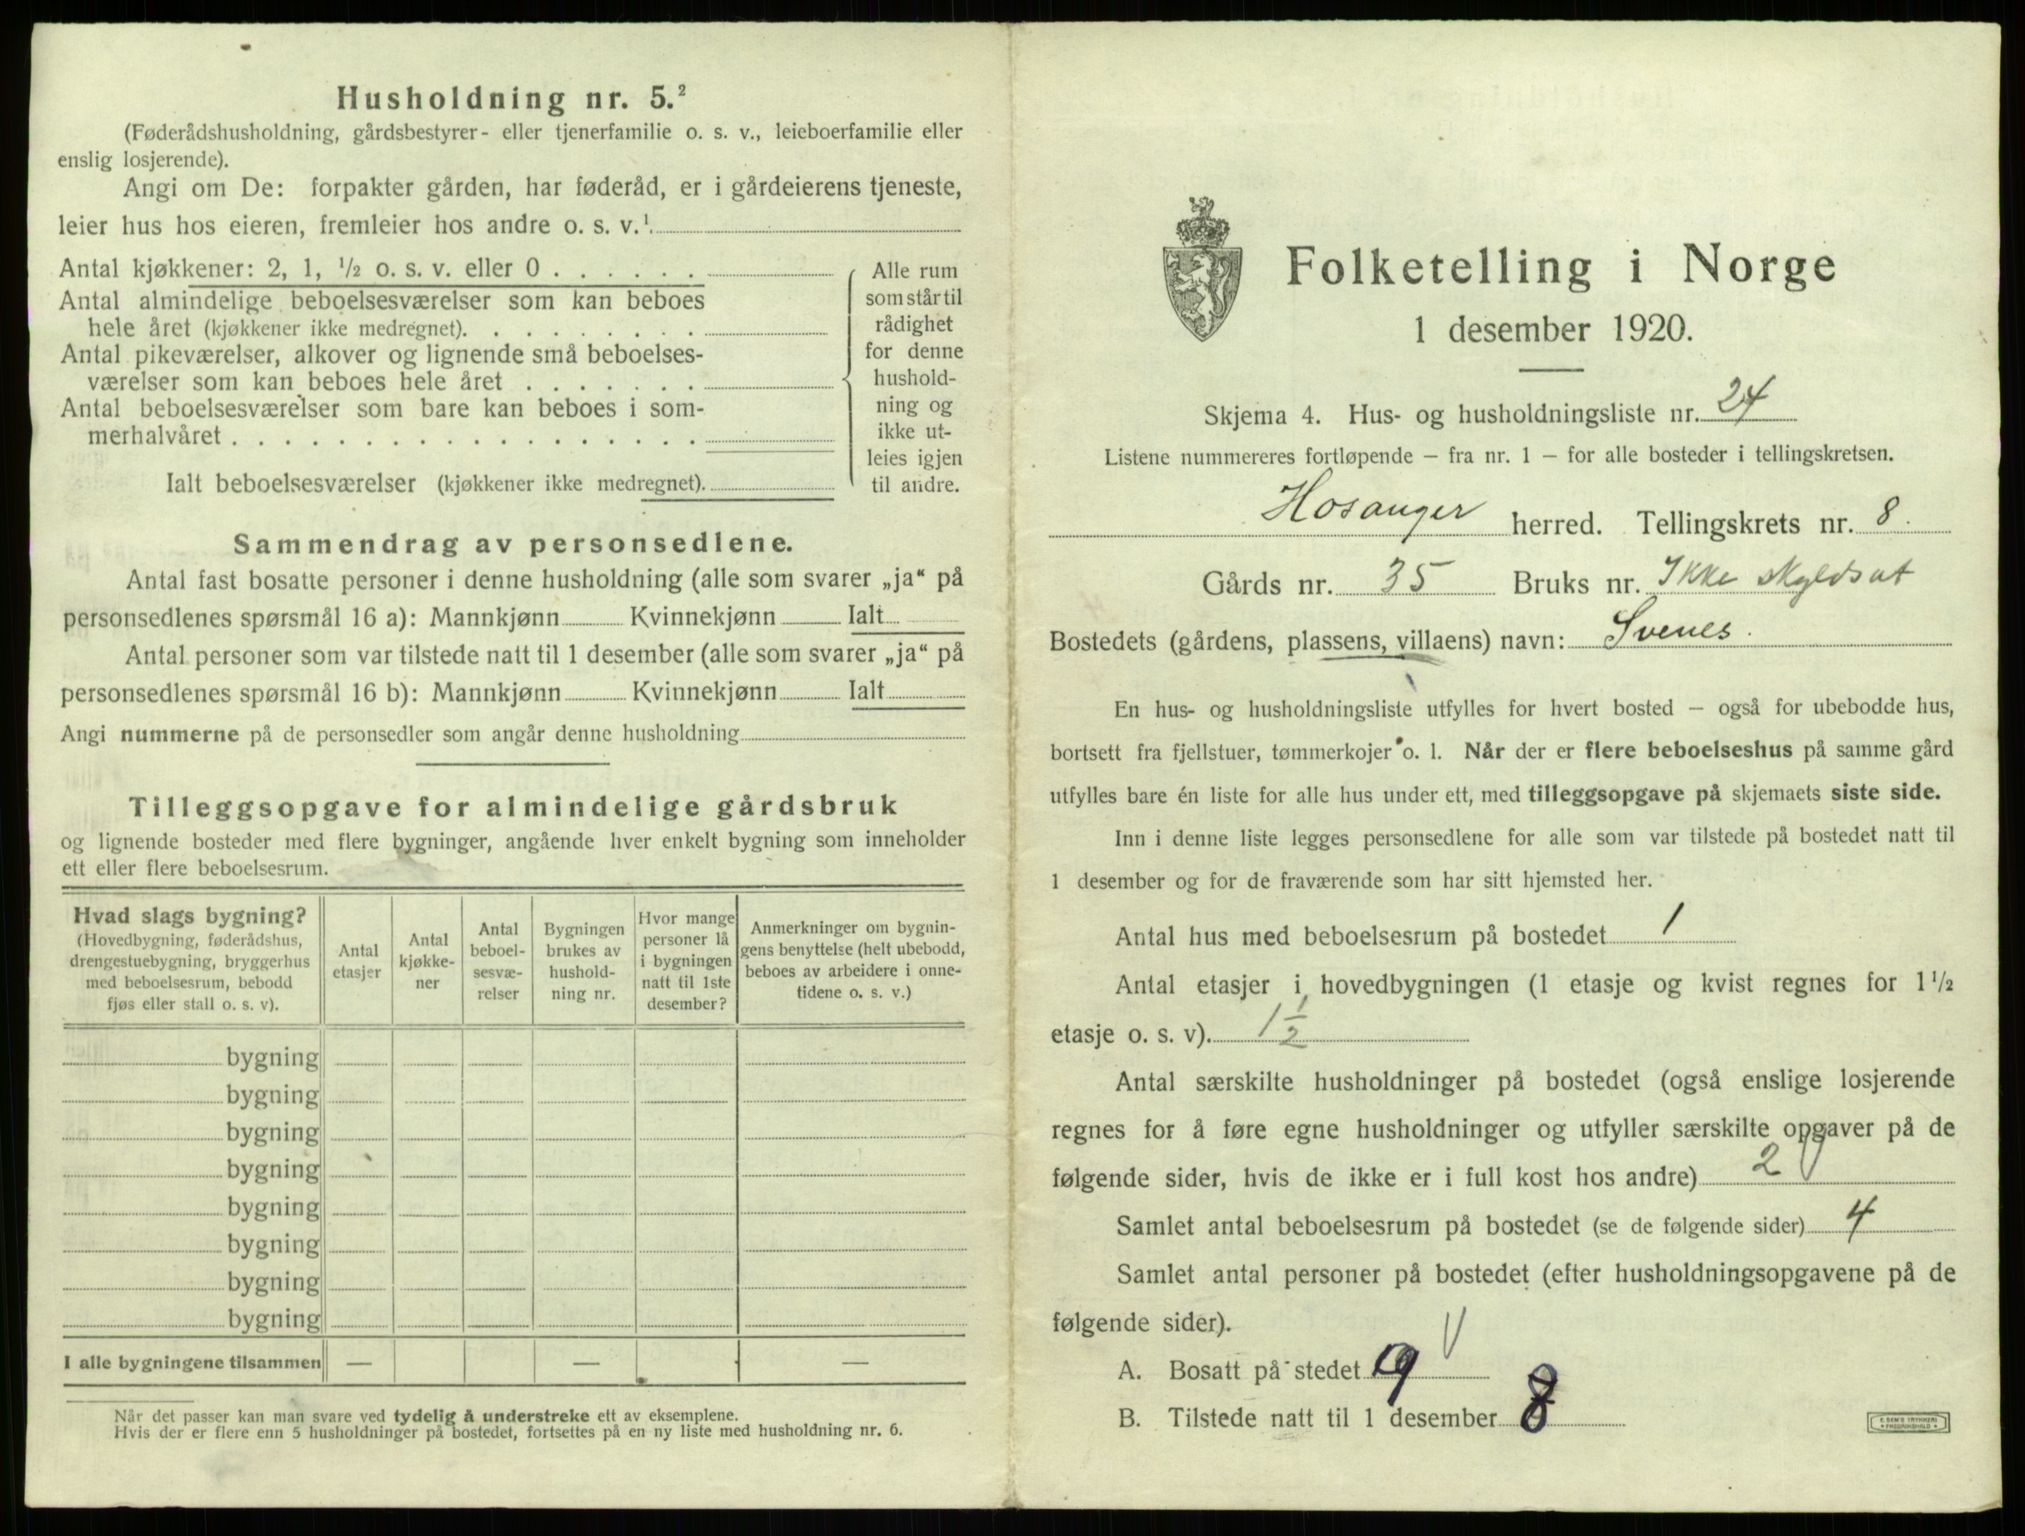 Husholdning nr. 5.²
(Føderådshusholdning, gårdsbestyrer- eller tjenerfamilie o. s. v., leieboerfamilie eller
enslig losjerende).
Angi om De: forpakter gården, har føderåd, er i gårdeierens tjeneste,
leier hus hos eieren, fremleier hos andre o. s. v.¹
Antal kjøkkener: 2, 1, ½ o. s. v. eller 0 . . . . . .
Antal almindelige beboelsesværelser som kan beboes
hele året (kjøkkener ikke medregnet). . . . . . . . .
Antal pikeværelser, alkover og lignende små beboelses-
værelser som kan beboes hele året . . . . . . .
Antal beboelsesværelser som bare kan beboes i som-
merhalvåret . . . . . . . . . . . . . . . . . .
Ialt beboelsesværelser (kjøkkener ikke medregnet).
Alle rum
som står til
rådighet
for denne
hushold-
ning og
ikke ut-
leies igjen
til andre.
Sammendrag av personsedlene.
Antal fast bosatte personer i denne husholdning (alle som svarer „ja“ på
personsedlenes spørsmål 16 a): Mannkjønn Kvinnekjønn Ialt
Antal personer som var tilstede natt til 1 desember (alle som svarer „ja“ på
personsedlenes spørsmål 16 b): Mannkjønn Kvinnekjønn Ialt
Angi nummerne på de personsedler som angår denne husholdning
Tilleggsopgave for almindelige gårdsbruk
og lignende bosteder med flere bygninger, angående hver enkelt bygning som inneholder
ett eller flere beboelsesrum.
Hvad slags bygning?
(Hovedbygning, føderådshus,
drengestuebygning, bryggerhus
med beboelsesrum, bebodd
fjøs eller stall o. s. v).
Antal
etasjer
Antal
kjøkke-
ner
Antal
beboel-
sesvæ-
relser
Bygningen
brukes av
hushold-
ning nr.
Hvor mange
personer lå
i bygningen
natt til 1ste
desember?
Anmerkninger om bygnin-
gens benyttelse (helt ubebodd,
beboes av arbeidere i onne-
tidene o. s. v.)
bygning
bygning
bygning
bygning
bygning
bygning
bygning
bygning
I alle bygningene tilsammen — — —
Når det passer kan man svare ved tydelig å understreke ett av eksemplene.
Hvis der er flere enn 5 husholdninger på bostedet, fortsettes på en ny liste med husholdning nr. 6.
Folketelling i Norge
1 desember 1920.
Skjema 4. Hus- og husholdningsliste nr. 24
Listene nummereres fortløpende – fra nr. 1 – for alle bosteder i tellingskretsen.
Hosanger herred. Tellingskrets nr. 8.
Gårds nr. 35 Bruks nr. Ikke skyldsat
Bostedets (gårdens, plassens, villaens) navn: Svenes.
En hus- og husholdningsliste utfylles for hvert bosted – også for ubebodde hus,
bortsett fra fjellstuer, tømmerkojer o. l. Når der er flere beboelseshus på samme gård
utfylles bare én liste for alle hus under ett, med tilleggsopgave på skjemaets siste side.
Inn i denne liste legges personsedlene for alle som var tilstede på bostedet natt til
1 desember og for de fraværende som har sitt hjemsted her.
Antal hus med beboelsesrum på bostedet 1
Antal etasjer i hovedbygningen (1 etasje og kvist regnes for 1½
etasje o. s. v). 1 ½
Antal særskilte husholdninger på bostedet (også enslige losjerende
regnes for å føre egne husholdninger og utfyller særskilte opgaver på de
følgende sider, hvis de ikke er i full kost hos andre) 2
Samlet antal beboelsesrum på bostedet (se de følgende sider) 4
Samlet antal personer på bostedet (efter husholdningsopgavene på de
følgende sider).
A. Bosatt på stedet 9
B. Tilstede natt til 1 desember 8